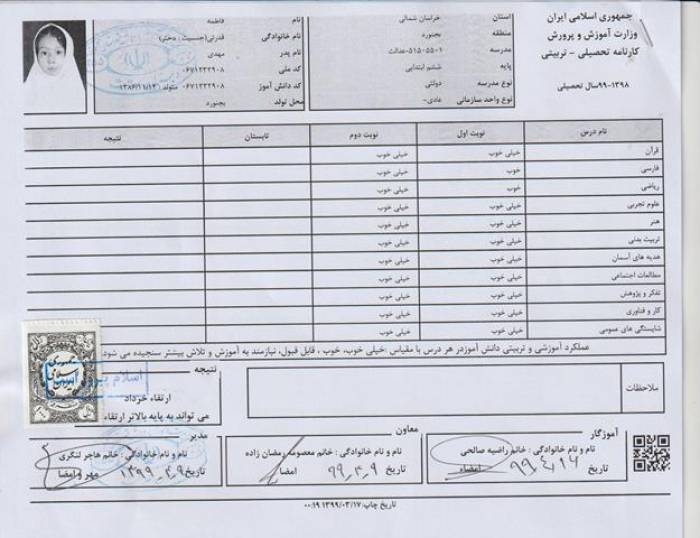 جمهوری اسلامی ایران
وزارت آموزش و پرورش
کارنامه تحصیلی - تربیتی
۹۹-۱۳۹۸سال تحصیلی
استان خراسان شمالی
منطقه بجنورد
مدرسه ۵۱۵۰۵۵۰۱-عدالت
پایه ششم ابتدایی
نوع مدرسه دولتی
نوع واحد سازمانی عادی-
نام فاطمه
نام خانوادگی قدرتی(جنسیت : دختر)
نام پدر مهدی
کد ملی ۰۶۷۱۲۳۲۹۰۸
کد دانش آموز ۰۶۷۱۲۳۲۹۰۸ متولد ۱۳۸۶/۱۱/۱۳
محل تولد بجنورد
نام درس نوبت اول نوبت دوم تابستان نتیجه
قرآن خیلی خوب خیلی خوب
فارسی خوب خیلی خوب
ریاضی خوب خیلی خوب
علوم تجربی خیلی خوب خیلی خوب
هنر خیلی خوب خیلی خوب
تربیت بدنی خیلی خوب خیلی خوب
هدیه های آسمان خیلی خوب خیلی خوب
مطالعات اجتماعی خیلی خوب خیلی خوب
تفکر و پژوهش خیلی خوب خیلی خوب
کار و فناوری خیلی خوب خیلی خوب
شایستگی های عمومی خیلی خوب خیلی خوب
عملکرد آموزشی و تربیتی دانش آموزدر هر درس با مقیاس :خیلی خوب، خوب ، قابل قبول، نیازمند به آموزش و تلاش بیشتر سنجیده می شود
ملاحظات
نتیجه
ارتقاء خرداد
می تواند به پایه بالاتر ارتقاء
آموزگار
نام و نام خانوادگی : خانم راضیه صالحی
تاریخ ۹۹،۴،۱۶ امضاء
معاون
نام و نام خانوادگی : خانم معصومه رمضان زاده
تاریخ ۹۹_۴_۹ امضا
مدیر
نام و نام خانوادگی : خانم هاجر لنگری
تاریخ ۱۳۹۹_۴_۹ مهر و امضا
تاریخ چاپ:۱۳۹۹/۰۳/۱۷ ۰۰:۱۹